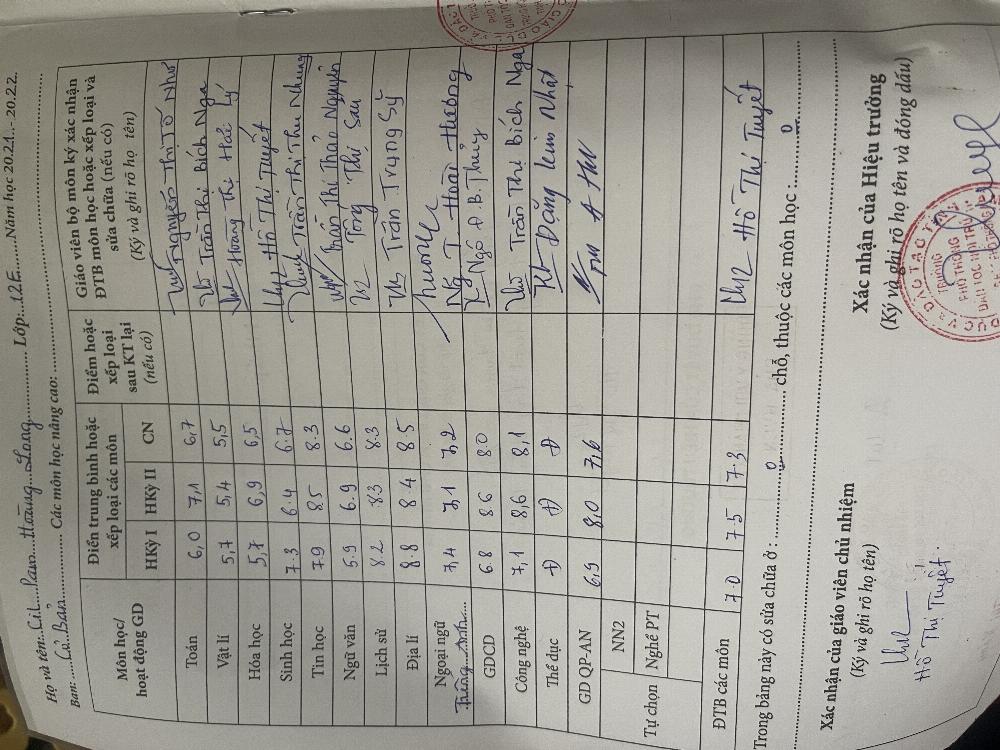 Họ và tên: Cil Pam Hoàng Long Lớp: 12E Năm học 2021 - 2022
Ban: Cơ Bản Các môn học nâng cao:
Môn học/ hoạt động GD
Điểm trung bình hoặc xếp loại các môn
HKỳ I HKỳ II CN
Điểm hoặc xếp loại sau KT lại (nếu có)
Giáo viên bộ môn ký xác nhận ĐTB môn học hoặc xếp loại và sửa chữa (nếu có)
(Ký và ghi rõ họ tên)
Toán 6,0 7,1 6,7 Nguyễn Thị Tố Như
Vật lí 5,7 5,4 5,5 Trần Thị Bích Nga
Hóa học 5,7 6,9 6,5 Hoàng Thị Hải Lý
Sinh học 7.3 6.4 6.7 Hồ Thị Tuyết
Tin học 7.9 8.5 8.3 Trần Thị Thu Nhung
Ngữ văn 5.9 6.9 6.6 Phan Thị Thảo Nguyên
Tống Thị Sau
Lịch sử 8.2 8.3 8.3
Địa lí 8.8 8.4 8.5 Trần Trung Sỹ
Ngoại ngữ 7,4 7,1 7,2 Hương
Tiếng Anh Ng T Hoài Hương
GDCD 6.8 8.6 8.0 Ngô Đ B. Thủy
Công nghệ 7,1 8,6 8,1 Trần Thị Bích Nga
Thể dục Đ Đ Đ Đặng Kim Nhật
GD QP-AN 6,9 8,0 7,6
Tự chọn NN2
Nghề PT
ĐTB các môn 7.0 7.5 7.3 Hồ Thị Tuyết
Trong bảng này có sửa chữa ở: 0 chỗ, thuộc các môn học: 0
Xác nhận của giáo viên chủ nhiệm
(Ký và ghi rõ họ tên)
Hồ Thị Tuyết
Xác nhận của Hiệu trưởng
(Ký và ghi rõ họ tên và đóng dấu)
TRƯỜNG
PHỔ THÔNG